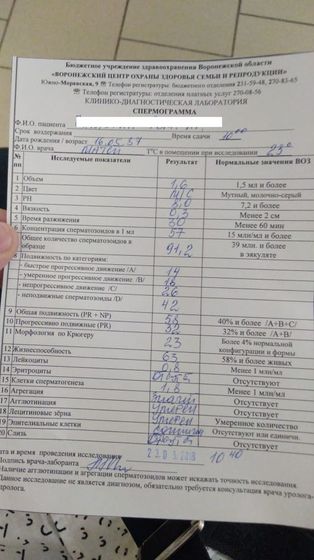 Бюджетное учреждение здравоохранения Воронежской области
«ВОРОНЕЖСКИЙ ЦЕНТР ОХРАНЫ ЗДОРОВЬЯ СЕМЬИ И РЕПРОДУКЦИИ»
Южно-Моравская, 9 ☎ Телефон регистратуры: бюджетного отделения 231-59-48, 270-83-65
☎ Телефон регистратуры: отделения платных услуг 270-08-56
КЛИНИКО-ДИАГНОСТИЧЕСКАЯ ЛАБОРАТОРИЯ
СПЕРМОГРАММА
Ф.И.О. пациента
Срок воздержания Время сдачи 10 00
Дата рождения / возраст 16.05.57
Ф.И.О. врача T°C в помещении при исследовании 23°
№ пп Исследуемые показатели Результат Нормальные значения ВОЗ
1 Объем 1,6 1,5 мл и более
2 Цвет м/с Мутный, молочно-серый
3 PH 8,0 7,2 и более
4 Вязкость 0,3 Менее 2 см
5 Время разжижения 30 Менее 60 мин
6 Концентрация сперматозоидов в 1 мл 57 15 млн/мл и более
7 Общее количество сперматозоидов в образце 91,2 39 млн. и более в эякуляте
8 Подвижность по категориям:
- быстрое прогрессивное движение /А/ 14
- умеренное прогрессивное движение /В/ 18
- непрогрессивное движение /С/ 26
- неподвижные сперматозоиды /D/ 42
9 Общая подвижность (PR + NP) 58 40% и более /А+В+С/
10 Прогрессивно подвижные (PR) 32 32% и более /А+В/
11 Морфология по Крюгеру 23 Более 4% нормальной конфигурации и формы
12 Жизнеспособность 63 58% и более живых
13 Лейкоциты 0,8 Менее 1 млн/мл
14 Эритроциты Отсутствуют
15 Клетки сперматогенеза 1,8 Менее 1 млн/мл
16 Агрегация Отсутствует
17 Агглютинация Отсутствует
18 Лецитиновые зёрна Умеренное количество
19 Эпителиальные клетки Отсутствуют или единичн.
20 Слизь Отсутствует
Дата и время проведения исследования 10 40
Подпись врача-лаборанта
Наличие агглютинации и агрегации сперматозоидов может искажать точность исследования.
Данное исследование не является диагнозом, обязательно требуется консультация врача уролога-